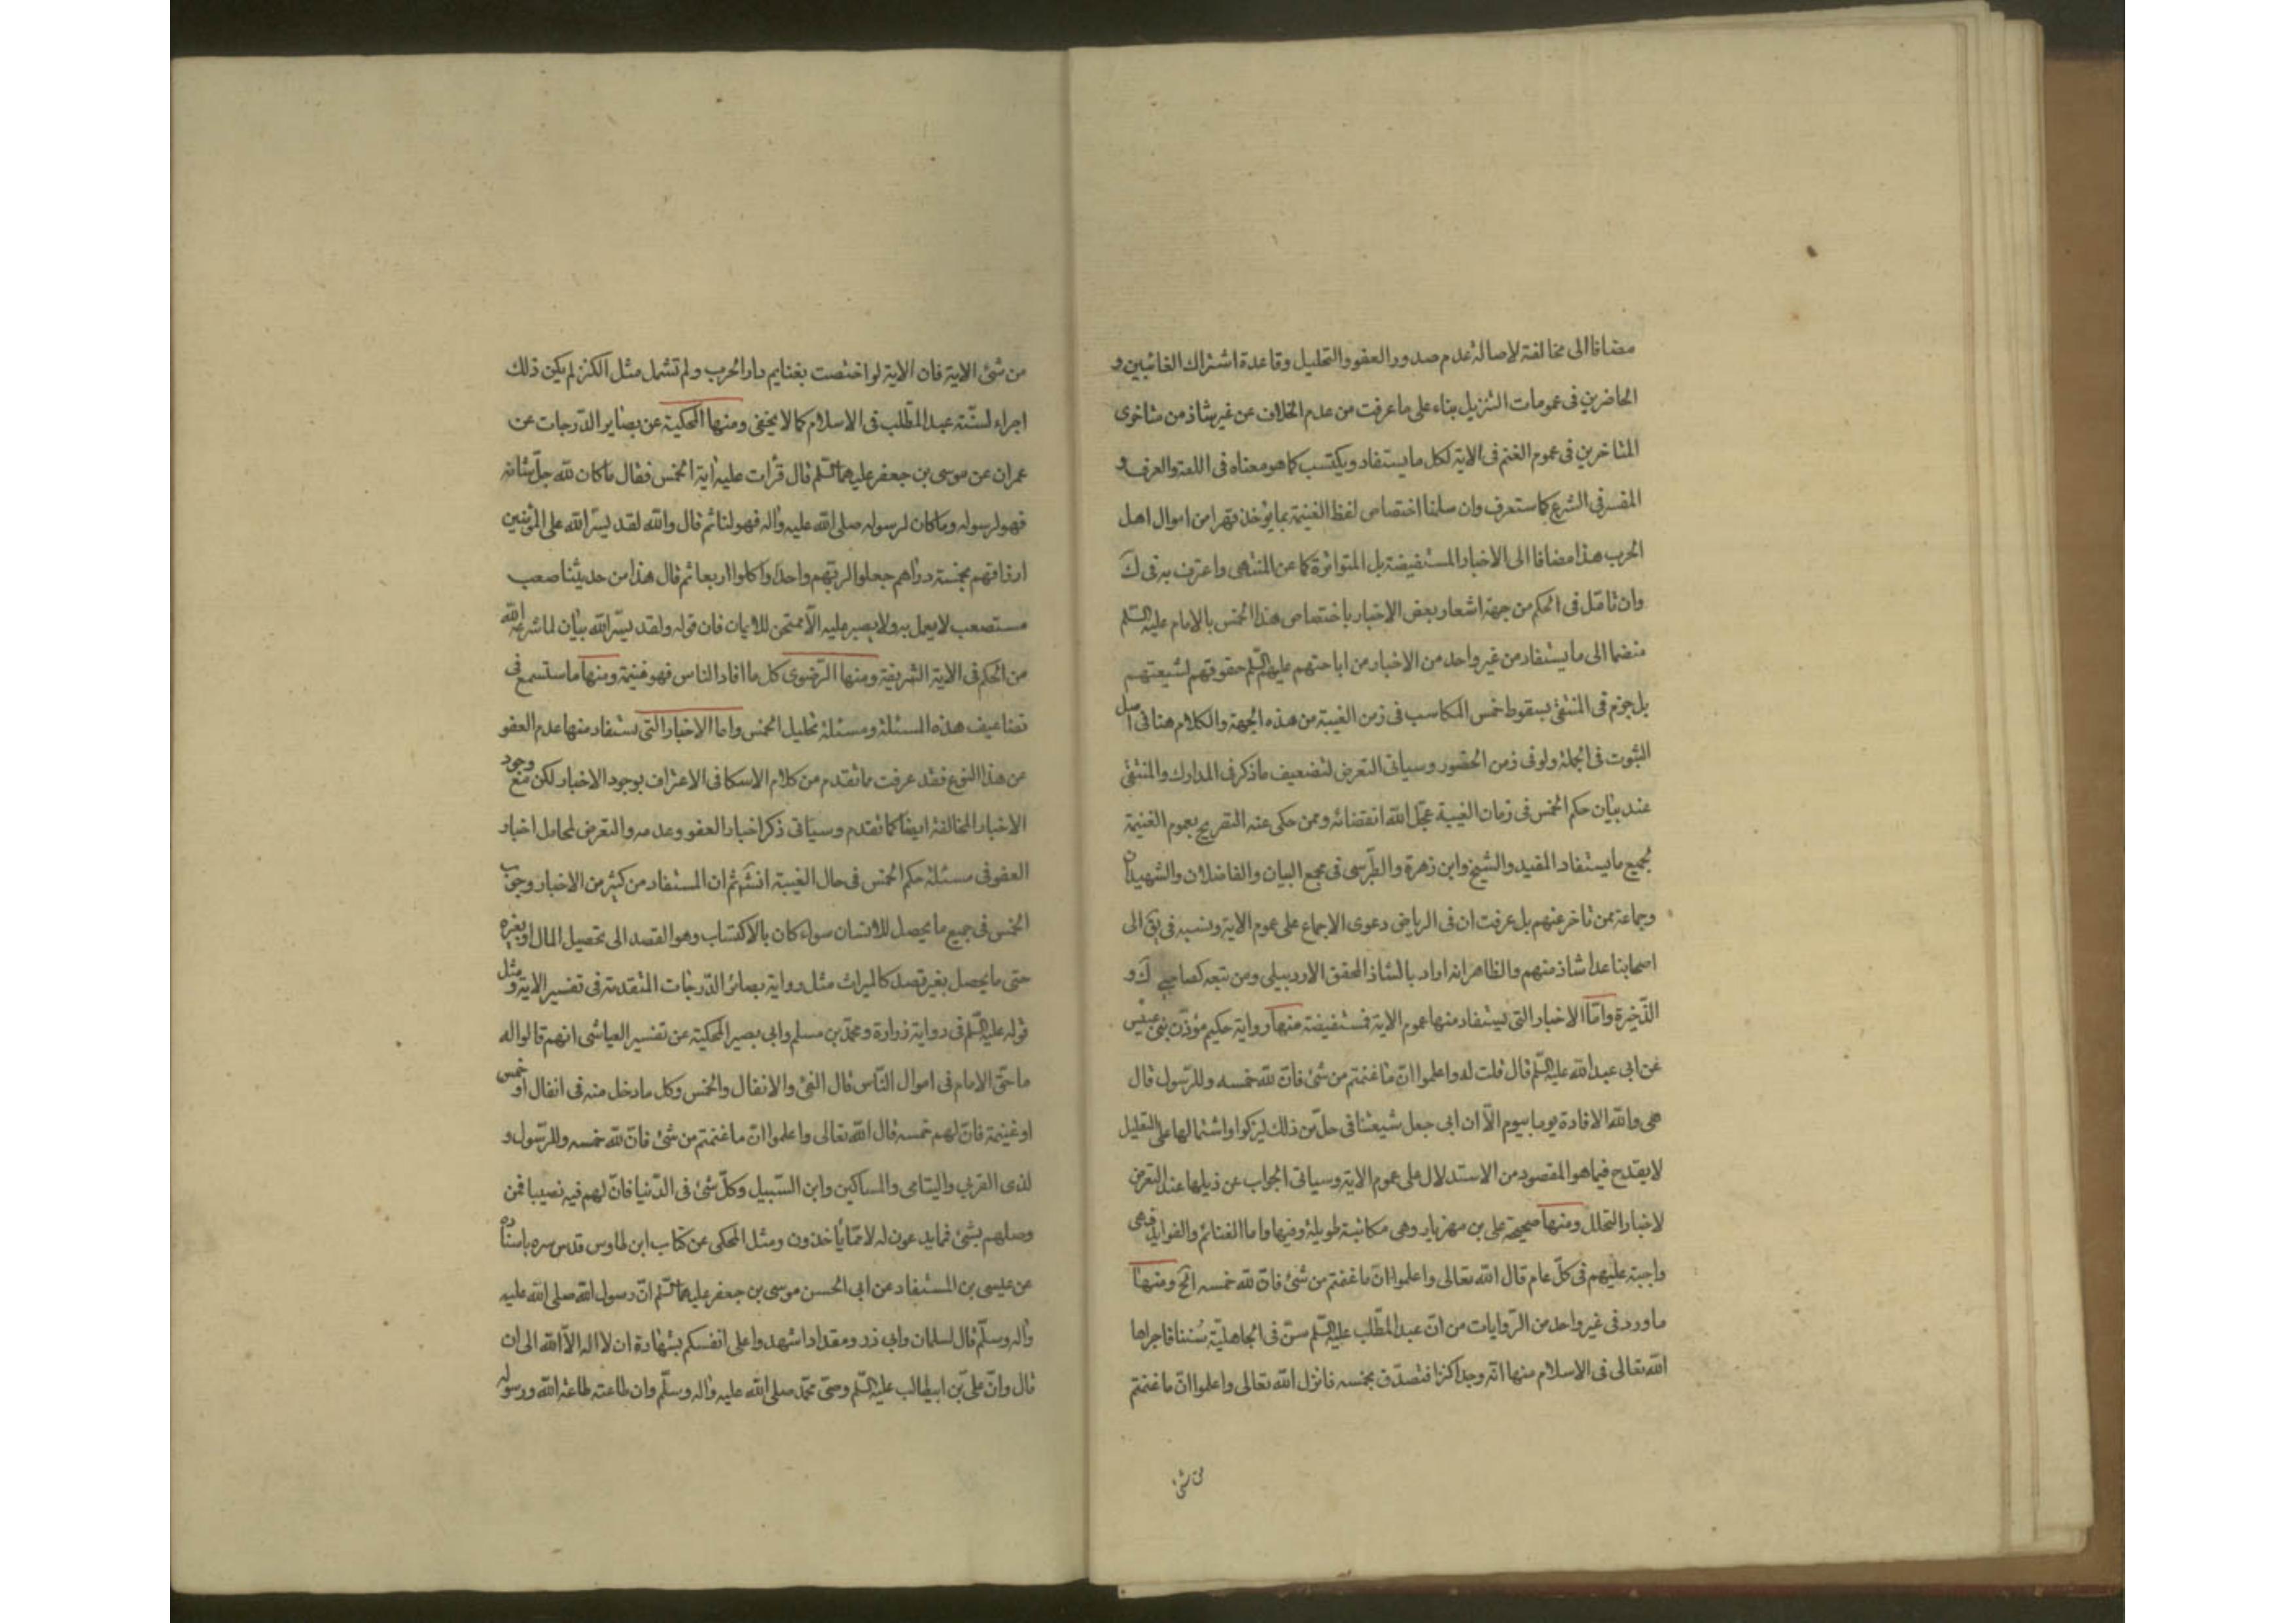 مضافا الى مخالفته لاصالة عدم صدور العفو والتحليل وقاعدة اشتراك الغائبين و
الحاضرين فى عمومات التنزيل بناء على ما عرفت من عدم الخلاف عن غير شاذ من متاخرى
المتاخرين فى عموم الغنم فى الاية لكل ما يستفاد ويكتسب كما هو معناه فى اللغة والعرف و
المفسر فى الشرع كما ستعرف وان سلمنا اختصاص لفظ الغنيمة بما يؤخذ قهرا من اموال اهل
الحرب هذا مضافا الى الاخبار المستفيضة بل المتواترة كما عن المنتهى واعترف به فى ك
وان تامّل فى الحكم من جهة اشعار بعض الاخبار باختصاص هذا الخمس بالامام عليه السّلم
منضما الى ما يستفاد من غير واحد من الاخبار من اباحتهم عليهم السّلم حقوقهم لشيعتهم
بل جزم فى المنتقى بسقوط خمس المكاسب فى زمن الغيبة من هذه الجهة والكلام هنا فى اصل
الثبوت فى الجملة ولو فى زمن الحضور وسياتى التعرض لتضعيف ما ذكر فى المدارك والمنتقى
عند بيان حكم الخمس فى زمان الغيبة عجّل الله انقضائه وممن حكى عنه التصريح بعموم الغنيمة
لجميع ما يستفاد المفيد والشيخ وابن زهرة والطبرسى فى مجمع البيان والفاضلان والشهيدان
وجماعة ممن تاخر عنهم بل عرفت ان فى الرياض دعوى الاجماع على عموم الاية ونسبه فى ئق الى
اصحابنا عدا شاذ منهم والظاهر انه اراد بالشاذ المحقق الاردبيلى ومن تبعه كصاحبى ك و
الذّخيرة وامّا الاخبار التى يستفاد منها عموم الاية فمستفيضة منها رواية حكيم مؤذّن بنى عبس
عن ابى عبد الله عليه السّلم قال قلت له واعلموا انّ ما غنمتم من شئ فانّ لله خمسه وللرّسول قال
هى والله الافادة يوما بيوم الّا ان ابى جعل شيعتنا فى حلّ من ذلك ليزكوا واشتمالها على التعليل
لا يقدح فيما هو المقصود من الاستدلال على عموم الاية وسياتى الجواب عن ذيلها عند التعرض
لاخبار التحلل ومنها صحيحة على بن مهزيار وهى مكاتبة طويلة وفيها واما الغنائم والفوايد فهى
واجبة عليهم فى كلّ عام قال الله تعالى واعلموا انّ ما غنمتم من شئ فانّ لله خمسه الخ ومنها
ما ورد فى غير واحد من الرّوايات من انّ عبد المطّلب عليه السّلم سنّ فى الجاهليّة سُننا فاجراها
الله تعالى فى الاسلام منها انّه وجد اكنزا فتصدّق بخمسه فانزل الله تعالى واعلموا انّ ما غنمتم
من شئ
من شئ الاية فان الاية لو اختصت بغنايم دار الحرب ولم تشمل مثل الكنز لم يكن ذلك
اجراء لسنّة عبد المطّلب فى الاسلام كما لا يخفى ومنها المحكية عن بصاير الدّرجات عن
عمران عن موسى بن جعفر عليهما السّلم قال قرأت عليه اية الخمس فقال ما كان لله جلّ شانه
فهو لرسوله وما كان لرسوله صلى الله عليه واله فهو لنا ثم قال والله لقد يسّر الله على المؤمنين
ارزاقهم بخمسة دراهم جعلوا لربّهم واحدا واكلوا اربعا ثم قال هذا من حديثنا صعب
مستصعب لا يعمل به ولا يصبر عليه الّا ممتحن للايمان فان قوله ولقد يسّر الله بيان لما شرعه الله
من الحكم فى الاية الشريفة ومنها الرّضوى كل ما افاد الناس فهو غنيمة ومنها ما ستسمع فى
تضاعيف هذه المسئلة ومسئلة تحليل الخمس واما الاخبار التى يستفاد منها عدم العفو
عن هذا النوع فقد عرفت ما تقدم من كلام الاسكافى الاعتراف بوجود الاخبار لكن مع وجود
الاخبار المخالفة ايضا كما تقدم وسياتى ذكر اخبار العفو وعدمه والتعرض لمحامل اخبار
العفو فى مسئلة حكم الخمس فى حال الغيبة انشَ ثم ان المستفاد من كثير من الاخبار وجوب
الخمس فى جميع ما يحصل للانسان سواء كان بالاكتساب وهو القصد الى تحصيل المال او بغيره
حتى ما يحصل بغير قصد كالميراث مثل رواية بصائر الدّرجات المتقدمة فى تفسير الاية ومثل
قوله عليه السّلم فى رواية زرارة ومحمّد بن مسلم وابى بصير المحكية عن تفسير العياشى انهم قالوا له
ما حق الامام فى اموال النّاس قال الفئ والانفال والخمس وكل ما دخل منه فى انفال او خمس
او غنيمة فانّ لهم خمسه قال الله تعالى واعلموا انّ ما غنمتم من شئ فانّ لله خمسه وللرّسول و
لذى القربى واليتامى والمساكين وابن السّبيل وكلّ شئ فى الدّنيا فانّ لهم فيه نصيبا فمن
وصلهم بشئ فما يدعون له لا ممّا يأخذون ومثل المحكى عن كتاب ابن طاوس قدس سره باسناده
عن عيسى بن المستفاد عن ابى الحسن موسى بن جعفر عليهما السّلم انّ رسول الله صلى الله عليه
واله وسلّم قال لسلمان وابى ذر ومقداد اشهدوا على انفسكم بشهادة ان لا اله الّا الله الى ان
قال وانّ على بّن ابيطالب عليه السّلم وصىّ محمّد صلى الله عليه واله وسلّم وان طاعته طاعة الله ورسوله